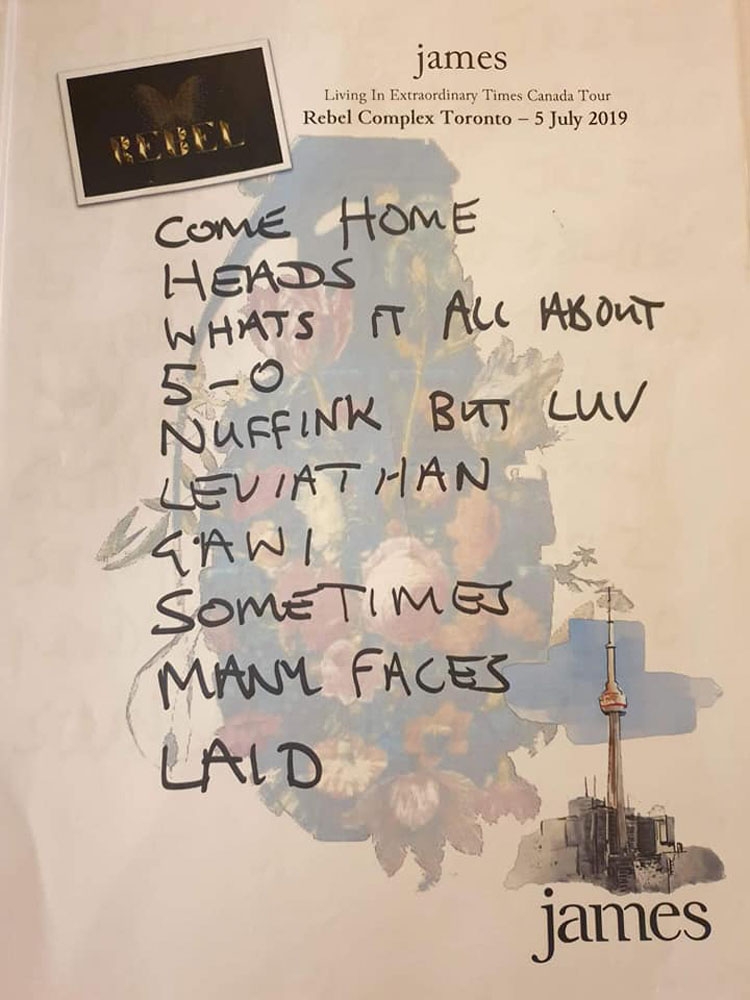 REBEL
james
Living In Extraordinary Times Canada Tour
Rebel Complex Toronto – 5 July 2019
COME HOME
HEADS
WHATS IT ALL ABOUT
5-0
NUFFINK BUT LUV
LEVIATHAN
GAWI
SOMETIMES
MANY FACES
LAID
james